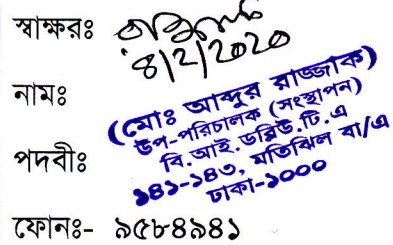 স্বাক্ষরঃ
৪/2/2020
নামঃ
(মোঃ আব্দুর রাজ্জাক)
উপ-পরিচালক (সংস্থাপন)
পদবীঃ
বি.আই.ডব্লিউ.টি.এ
১৪১-১৪৩, মতিঝিল বা/এ
ঢাকা-১০০০
ফোনঃ- ৯৫৮৪৯৪১